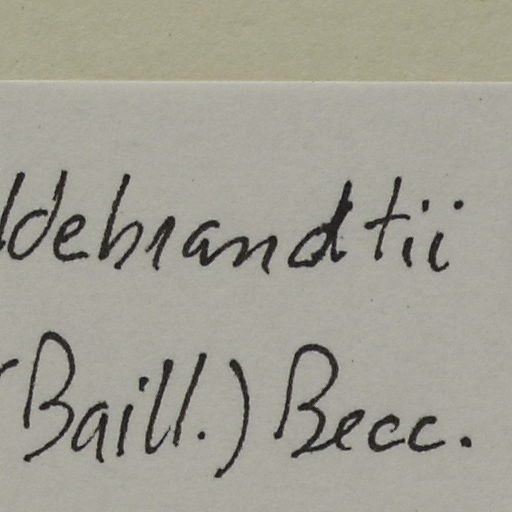 ldebrandtii
(Baill.) Becc.